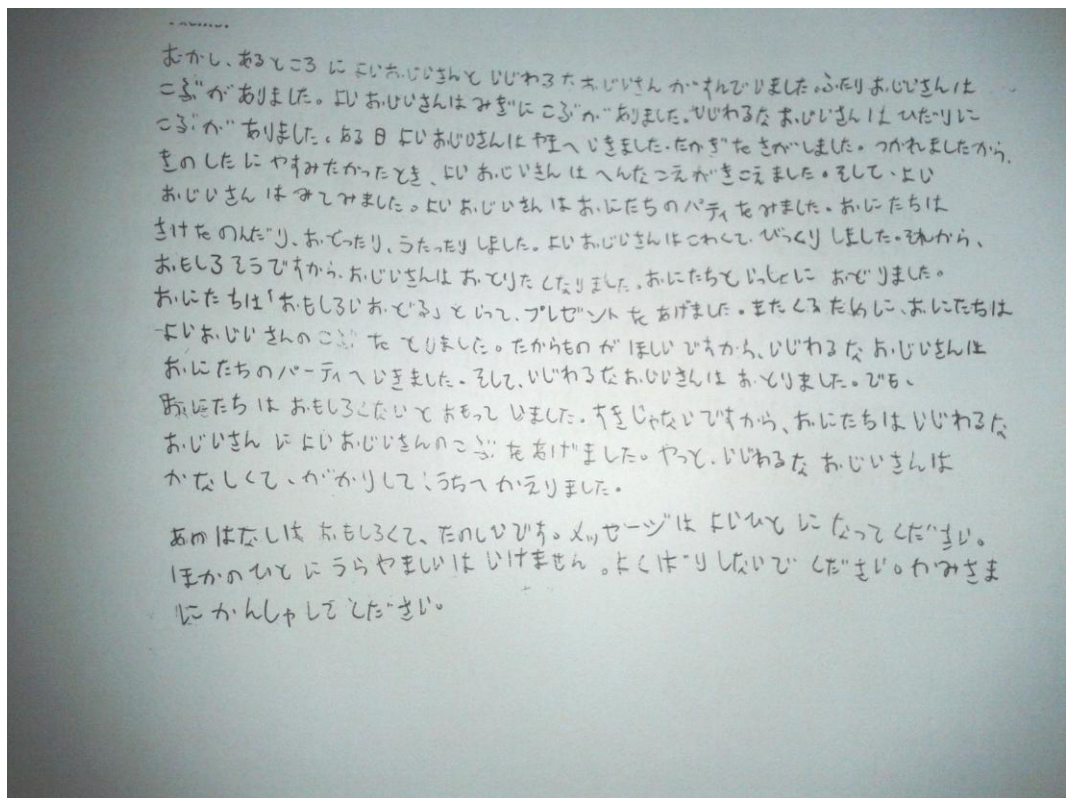 むかし、あるところに よいおじいさんと いじわるなおじいさんが すんでいました。ふたりおじいさんは
こぶがありました。よいおじいさんはみぎにこぶがありました。いじわるなおじいさんはひだりに
こぶがありました。ある日よいおじいさんはやまへいきました。たかぎをさがしました。つかれましたから、
きのしたにやすみたかったとき、よいおじいさんはへんなこえがきこえました。そして、よい
おじいさんはみてみました。よいおじいさんはおにたちのパティをみました。おにたちは
さけをのんだり、おどったり、うたったりしました。よいおじいさんはこわくて、びっくりしました。それから、
おもしろそうですから、おじいさんはおどりたくなりました。おにたちといっしょにおどりました。
おにたちは「おもしろいおどる」といって、プレゼントをあげました。またくるために、おにたちは
よいおじいさんのこぶをとりました。たからものがほしいですから、いじわるなおじいさんは
おにたちのパーティへいきました。そして、いじわるなおじいさんはおどりました。でも、
おにたちはおもしろくないとおもっていました。すきじゃないですから、おにたちはいじわるな
おじいさんによいおじいさんのこぶをあげました。やっと、いじわるなおじいさんは
かなしくて、がかりして、うちへかえりました。
あのはなしは おもしろくて、たのしいです。メッセージはよいひとになってください。
ほかのひとにうらやましいはいけません。よくばりしないでください。かみさま
にかんしゃしてください。